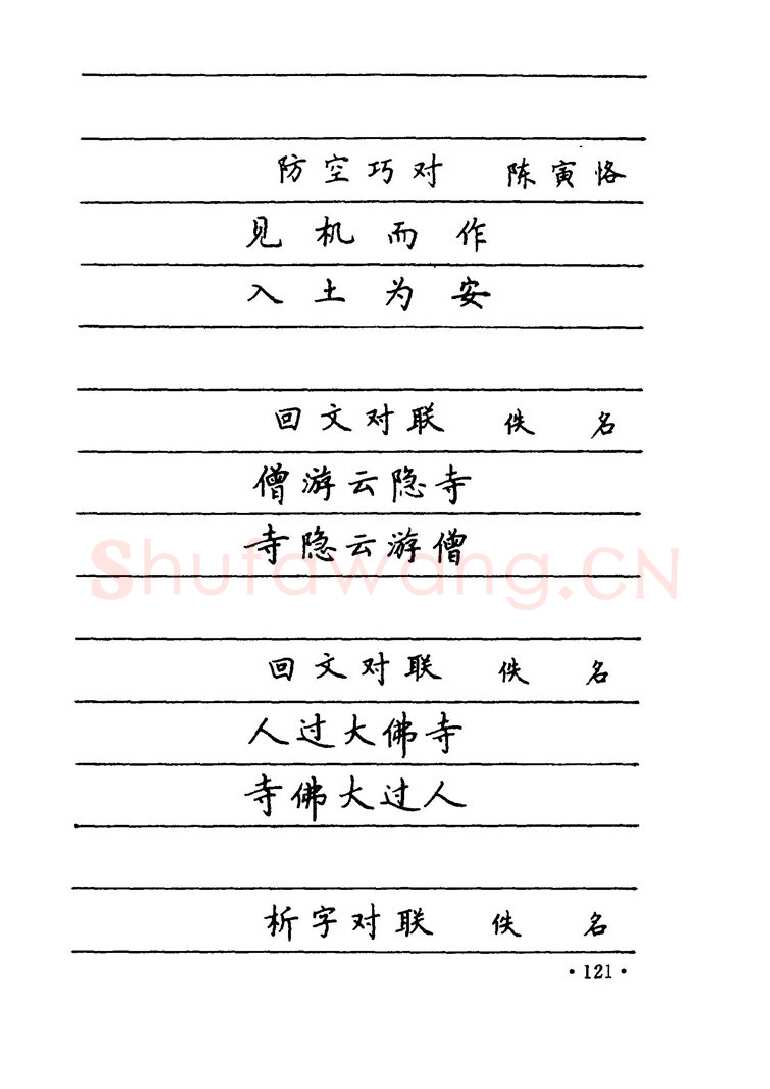 防空巧对 陈寅恪
见机而作
入土为安
回文对联 佚名
僧游云隐寺
寺隐云游僧
shufawang.CN
回文对联 佚名
人过大佛寺
寺佛大过人
析字对联 佚名
·121·